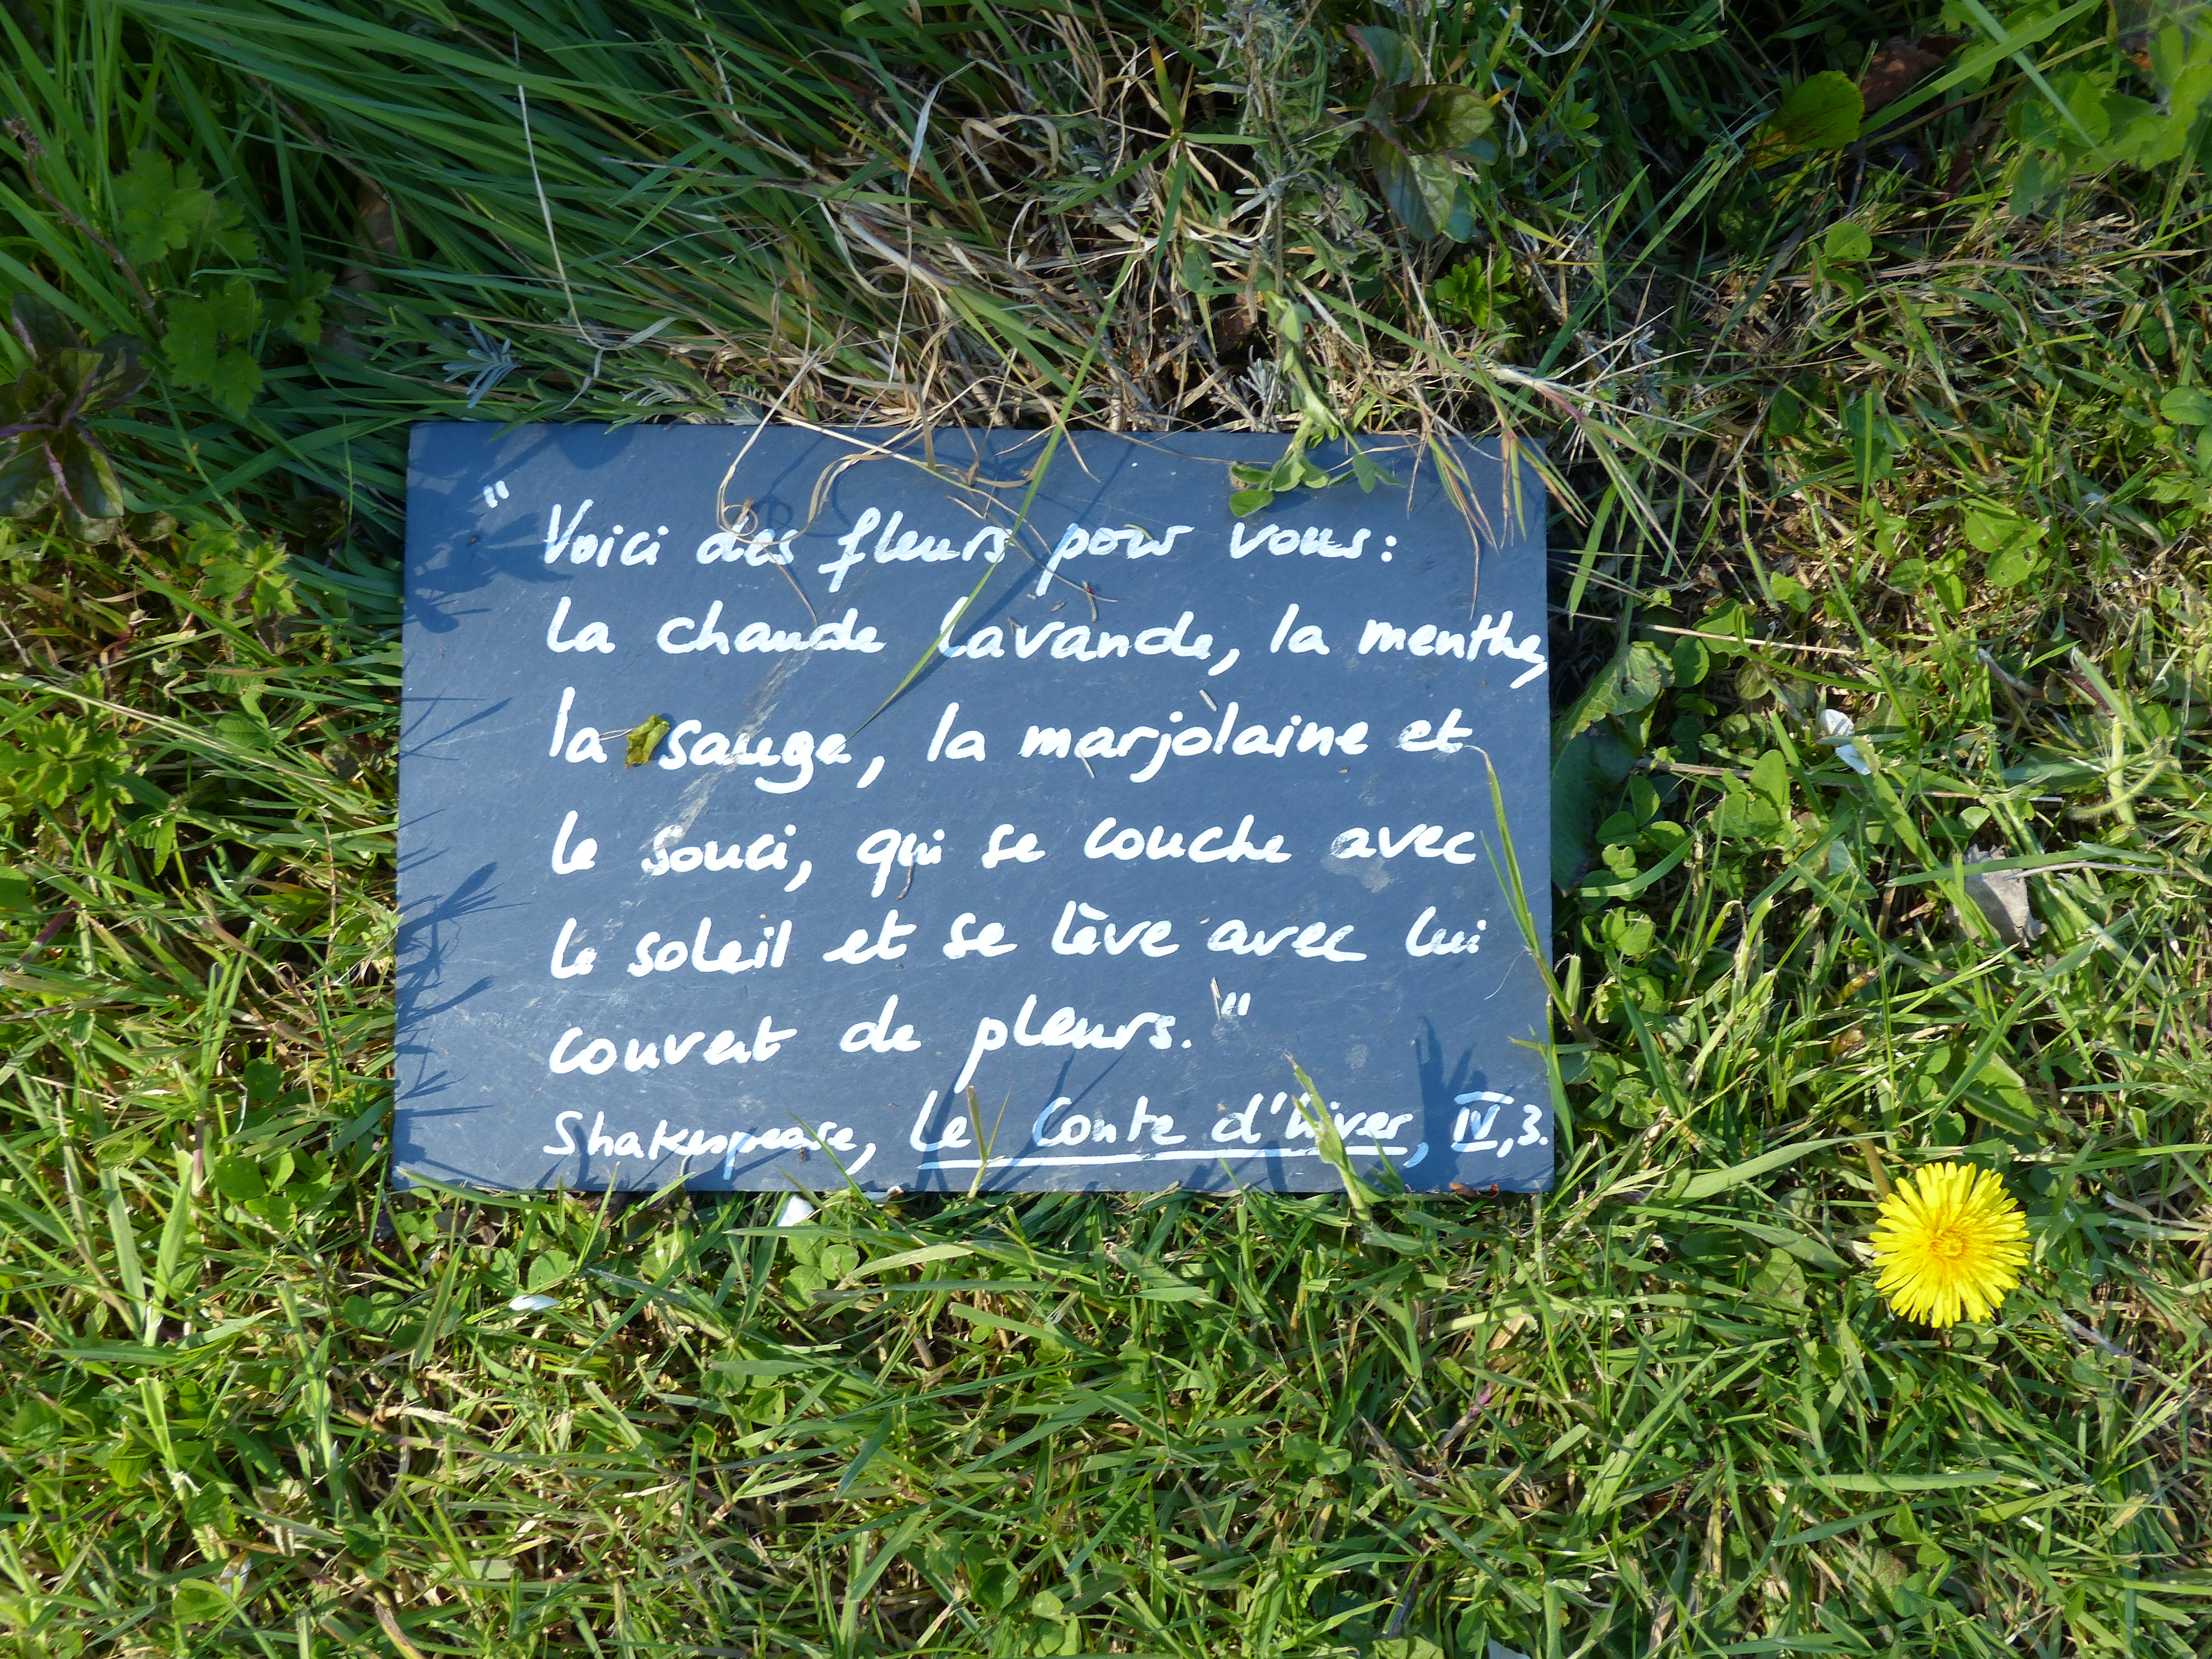 " Voici des fleurs pour vous :
la chaude lavande, la menthe,
la sauge, la marjolaine et
le souci, qui se couche avec
le soleil et se lève avec lui
couvert de pleurs."
Shakespeare, Le Conte d'hiver, IV,3.